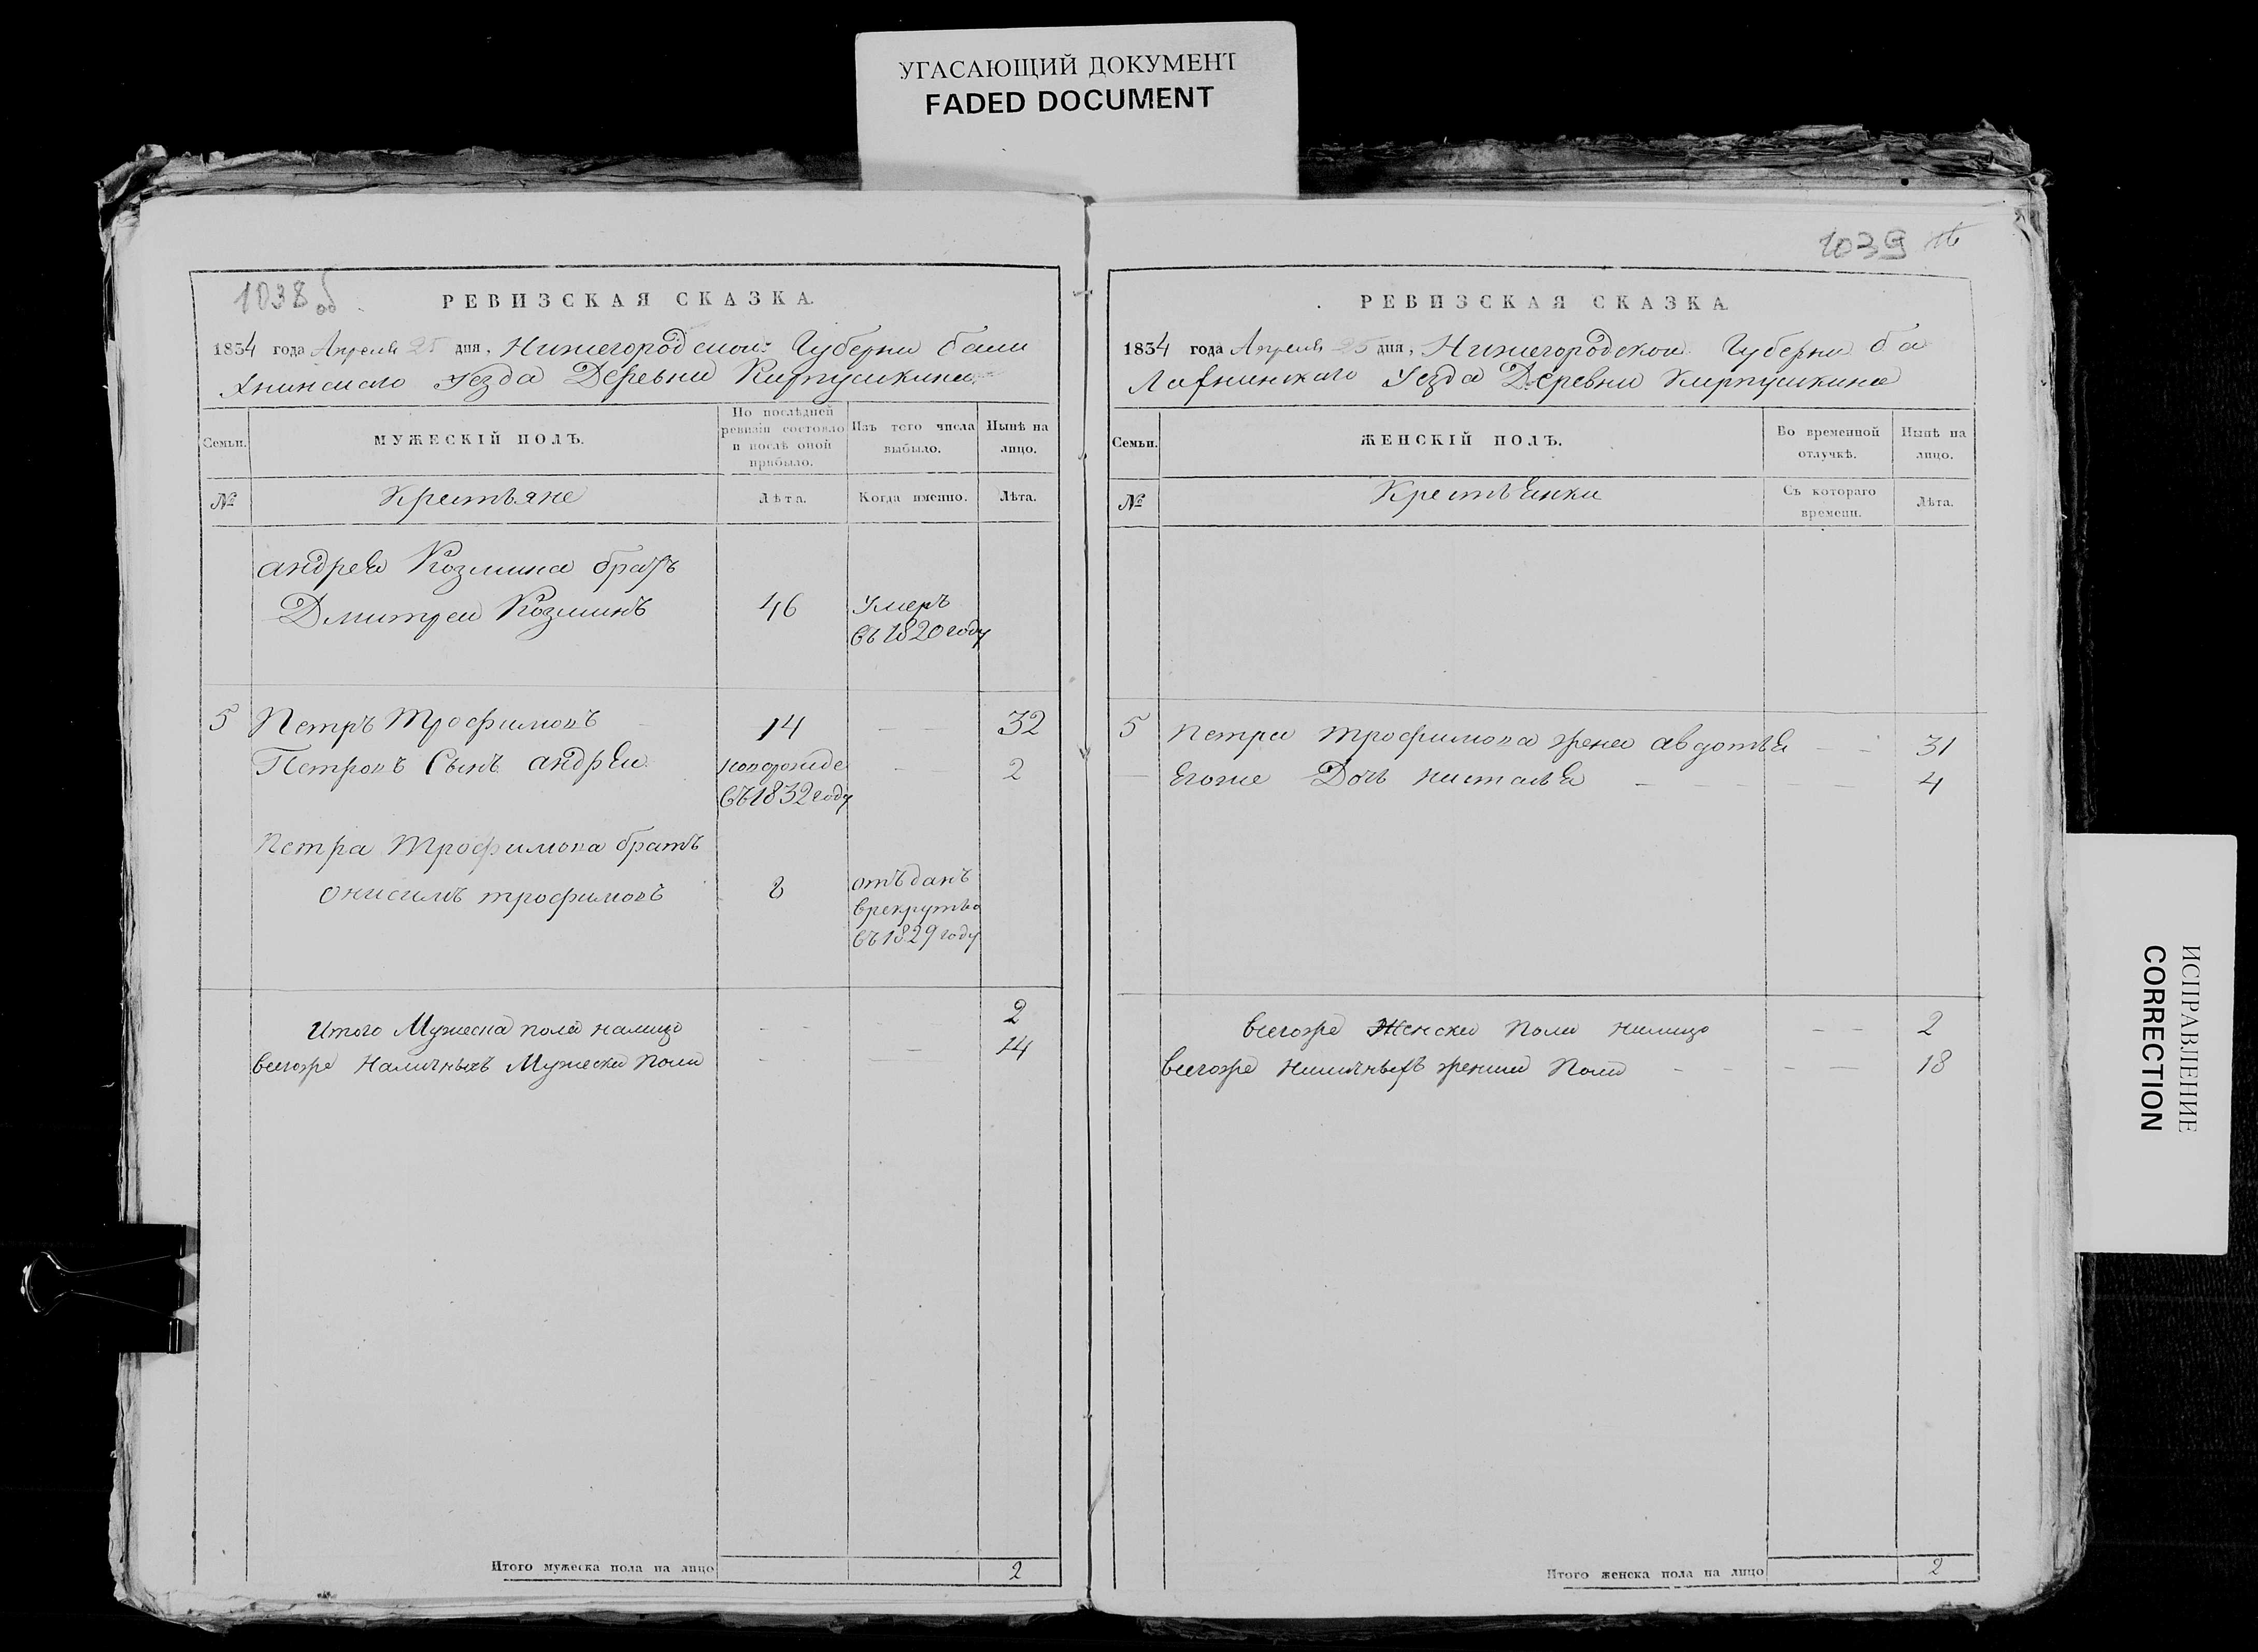 УГАСАЮЩИЙ ДОКУМЕНТ
FADED DOCUMENT
1038 об
РЕВИЗСКАЯ СКАЗКА.
1834 года Апреля 25 дня, Нижегородской Губерни бала
хнинскаго Уезда Деревни Кирпушкина
Семьи.
МУЖЕСКІЙ ПОЛЪ.
По послѣдней ревизіи состояло и послѣ оной прибыло.
Изъ того числа выбыло.
Нынѣ на лицо.
№
Крестьяне
Лѣта.
Когда именно.
Лѣта.
андрея Козмина братъ
Дмитреи Козминъ 46 Умеръ
въ 1820 году
5 Петръ Трофимовъ 14 — — 32
Петровъ Сынъ андреи новорожде — — 2
въ 1832 году
Петра Трофимова братъ
онисимъ трофимовъ 8 отъданъ
врекрутыо
въ 1829 году
Итого Мужеска пола налицо 2
всегоже Наличныхъ Мужеска пола 14
Итого мужеска пола на лицо 2
1039
РЕВИЗСКАЯ СКАЗКА
1834 года Апреля 25 дня, Нижегородской Губерни ба
Лахнинскаго Уезда Деревни Кирпушкина
Семьи.
ЖЕНСКІЙ ПОЛЪ.
Во временной отлучкѣ.
Нынѣ на лицо.
№
Крестьянки
Съ котораго времени.
Лѣта.
5 Петра трофимова жена авдотья — — 31
Егоже Дочь наталья 4
всегоже Женска Пола налицо — — 2
всегоже наличныхъ женска Пола 18
Итого женска пола на лицо 2
ИСПРАВЛЕНИЕ
CORRECTION